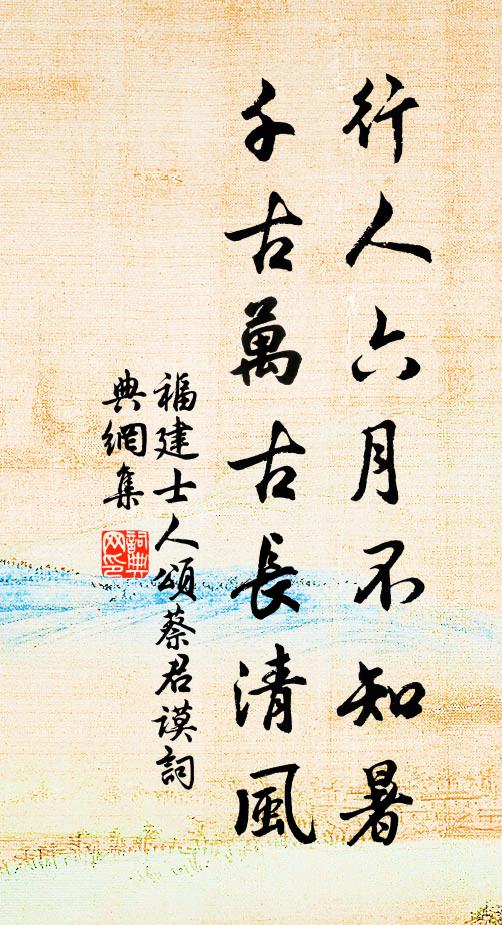 行人六月不知暑
千古萬古長清風
福建士人頌蔡君謨詞
典網集
詞典網印